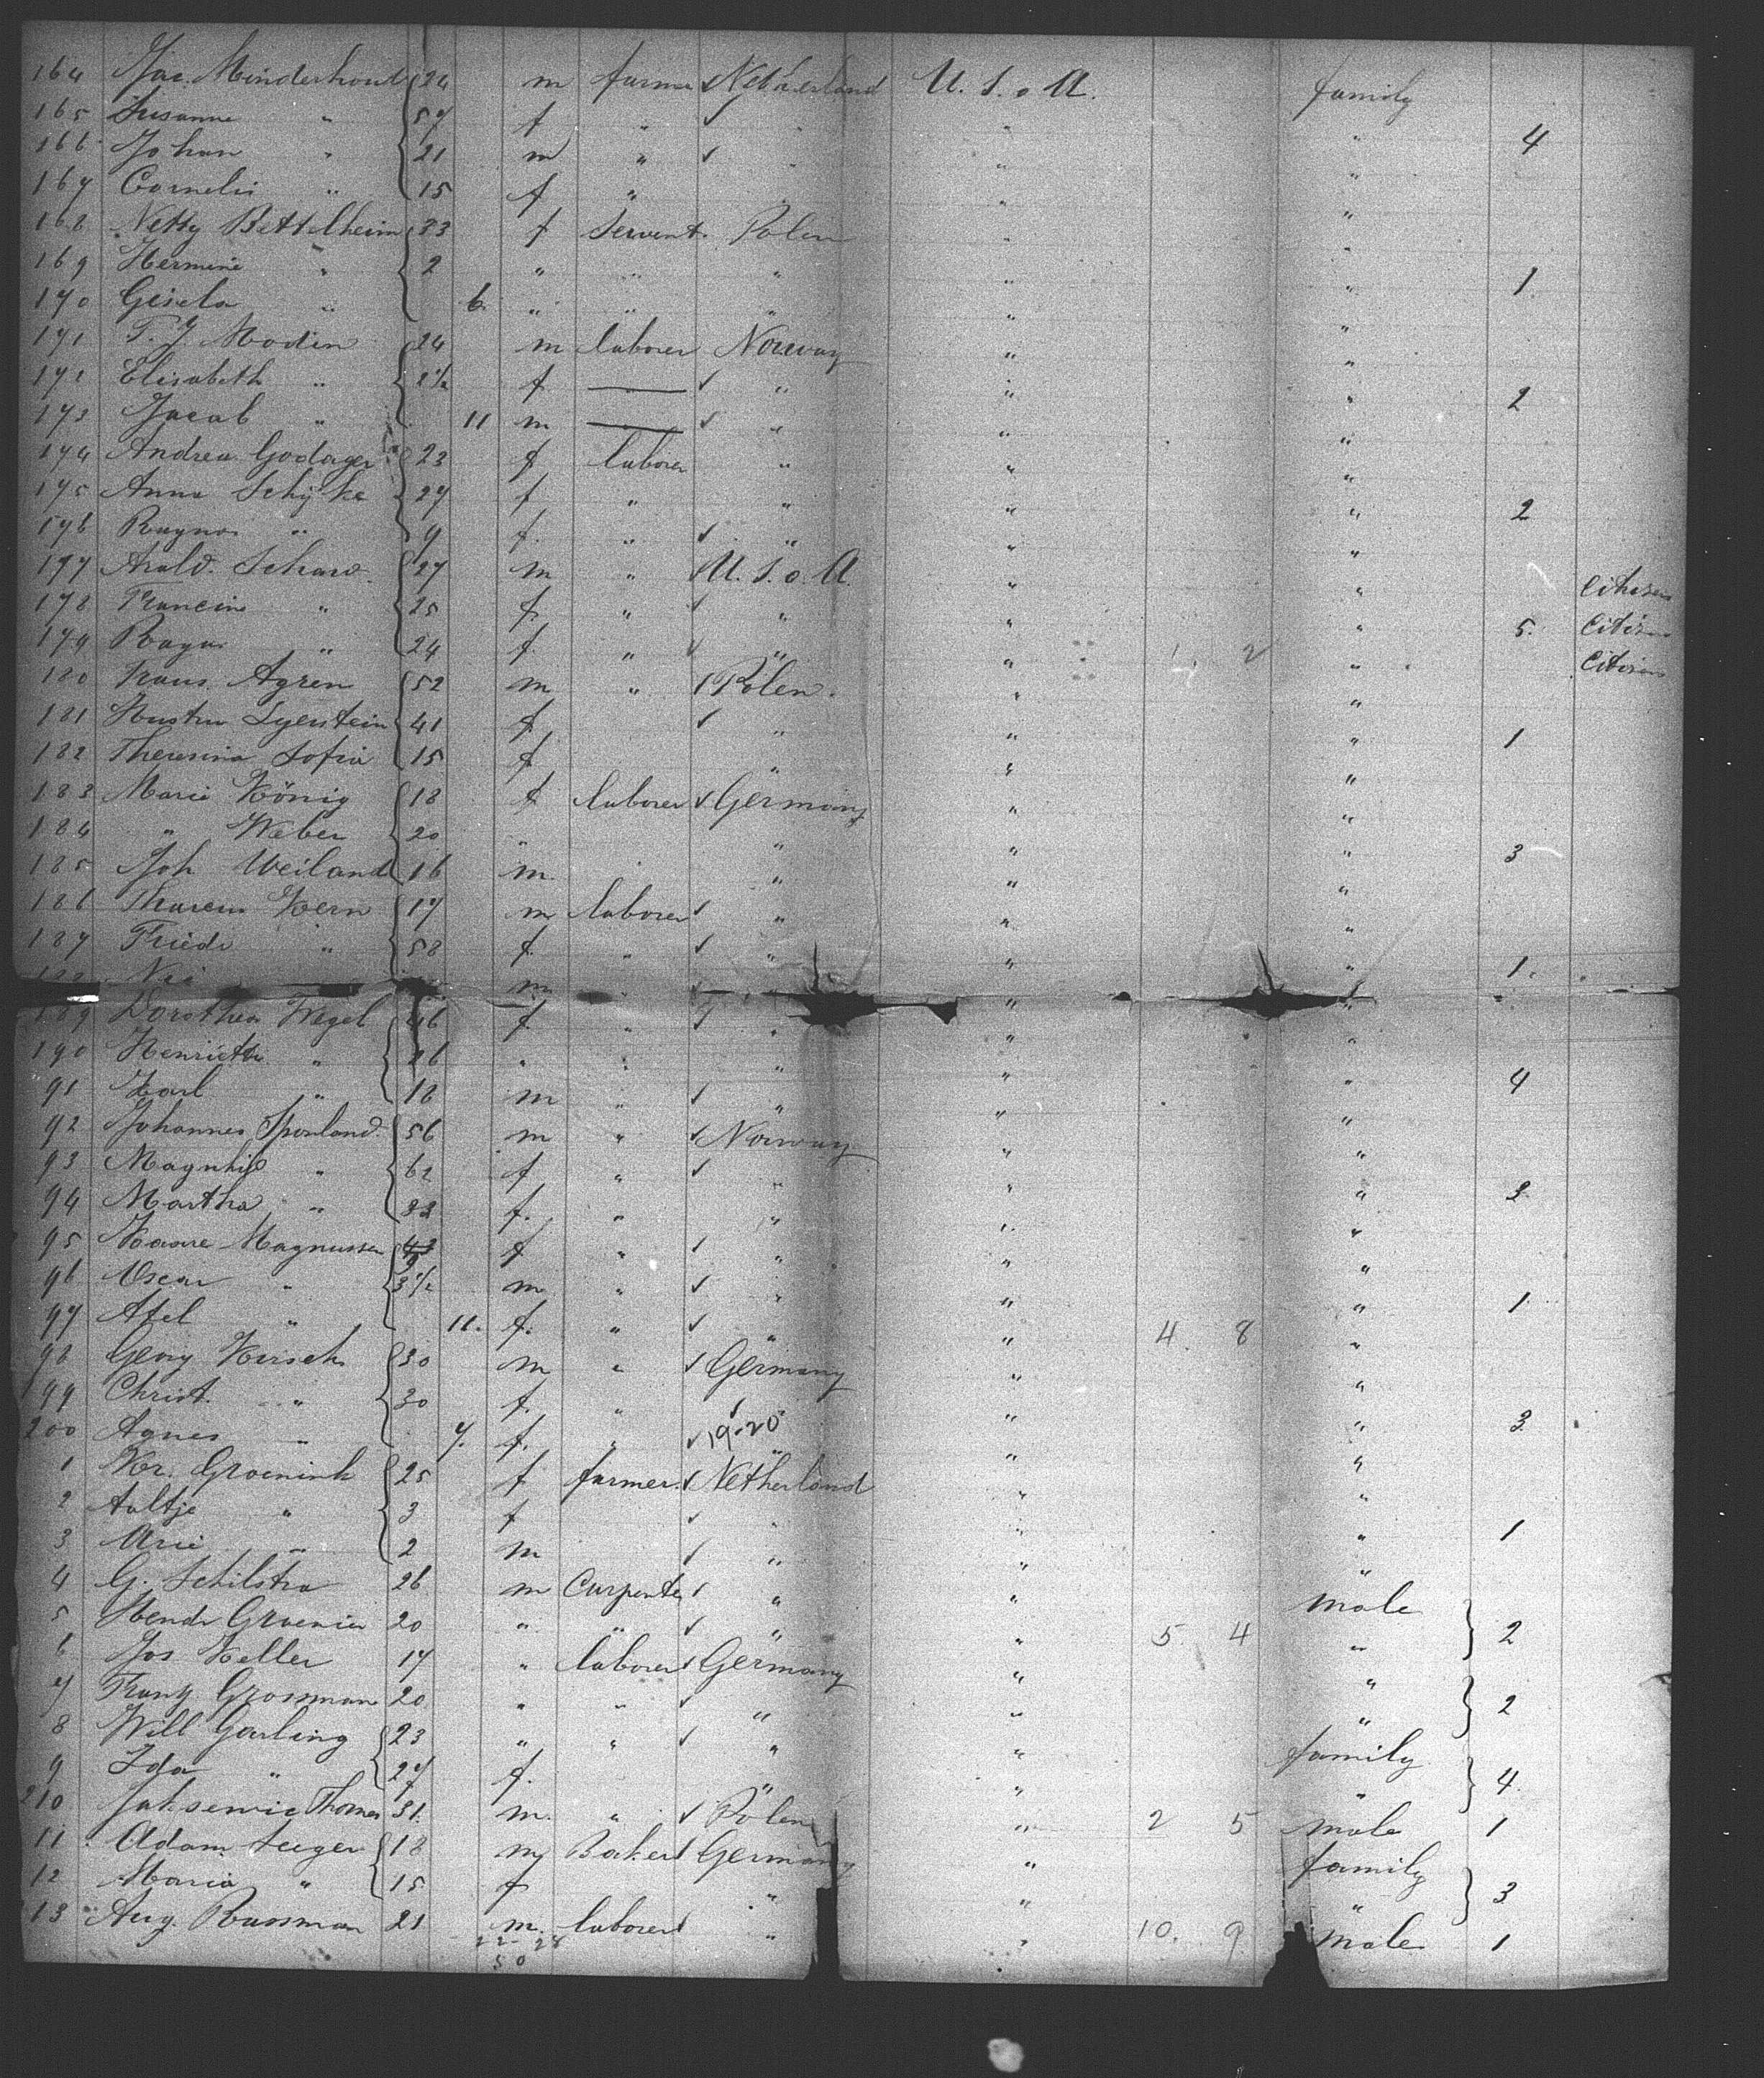 164 Jac. Minderhoud 24 m farmer Netherland U. S. o A. family
165 Susanne " 57 f " " " " 4
166 Johan " 21 m " " " "
167 Cornelis " 15 f " " " "
168 Netty Bettelheim 33 f Servent Polen " "
169 Hermine " 2 " " " " " 1
170 Gisela " 6 " " " " "
171 T. J. Modin 24 m laborer Norway " "
172 Elisabeth " 2 1/2 f — " " " 2
173 Jacob " 11 m — " " "
174 Andrea Godager 23 f laborer " " "
175 Anna Schijtke 27 f " " " " 2
176 Ragna " 9 f. " " " "
177 Arald. Schard. 27 m " U. S. o. A. " " Citizen
178 Francine " 25 f. " " " " 5. Citizen
179 Ragna " 24 f. " " " 1 2 " Citizen
180 Frans. Agren 52 m " Polen. " "
181 Hustru Lyerstein 41 f " " " 1
182 Theresina Sofia 15 f " " "
183 Marie König 18 f laborer Germany " "
184 " Weber 20 " " " " 3
185 Joh Weiland 16 m " " "
186 Kern 17 m laborer " " "
187 Friedr " 58 f. " " " " 1.
188 m " "
189 Dorothea Wegel 46 f " " " "
190 Henriette " 26 " " " " "
91 Karl " 18 m " " " " 4
92 Johannes 56 m " Norway " "
93 Magnhild " 62 f " " " "
94 Martha " 32 f. " " " " 2
95 Magnussen f " " " "
96 Oscar " 3 1/2 m " " " " 1
97 Axel " 11. f. " " " 4 8 "
98 Georg Kirsch 30 m " Germany " "
99 Christ. " 30 f. " " " " 3
200 Agnes " 7. f. " 19-20 " "
1 Kor. Groenink 25 f farmer. Netherland " "
2 Aaltje " 3 f " " " 1
3 Arie " 2 m " " "
4 G. Schilstra 26 m Carpenter " " male
5 Hendr Groenier 20 " " " " 5 4 " 2
6 Jos Keller 17 " laborer Germany " "
7 Frantz Grossman 20 " " " " " 2
8 Will Garling 23 " " " " family
9 Ida " 27 f. " " " 4.
210 Jaksewic Thomas 31. m. " Polen " 2 5 male 1
11 Adam Seeger 18 m Baker Germany " family
12 Maria " 15 f " " " 3
13 Aug. Russman 21 m. laborer " " 10. 9 male 1
22 28
50